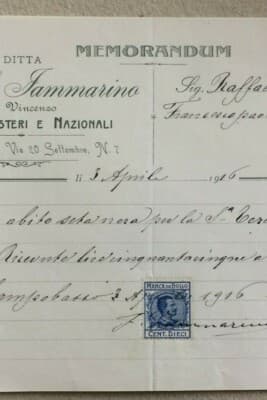 DITTA
MEMORANDUM
Jammarino
Vincenzo
STERI E NAZIONALI
Via 20 Settembre, N. 7
Sig. Raffae
Francescopao
li 3 Aprile 1916
abito seta nera per la S.ra
Ricevute lire cinquantacinque
Campobasso 3 1916
MARCA DA BOLLO
CENT. DIECI